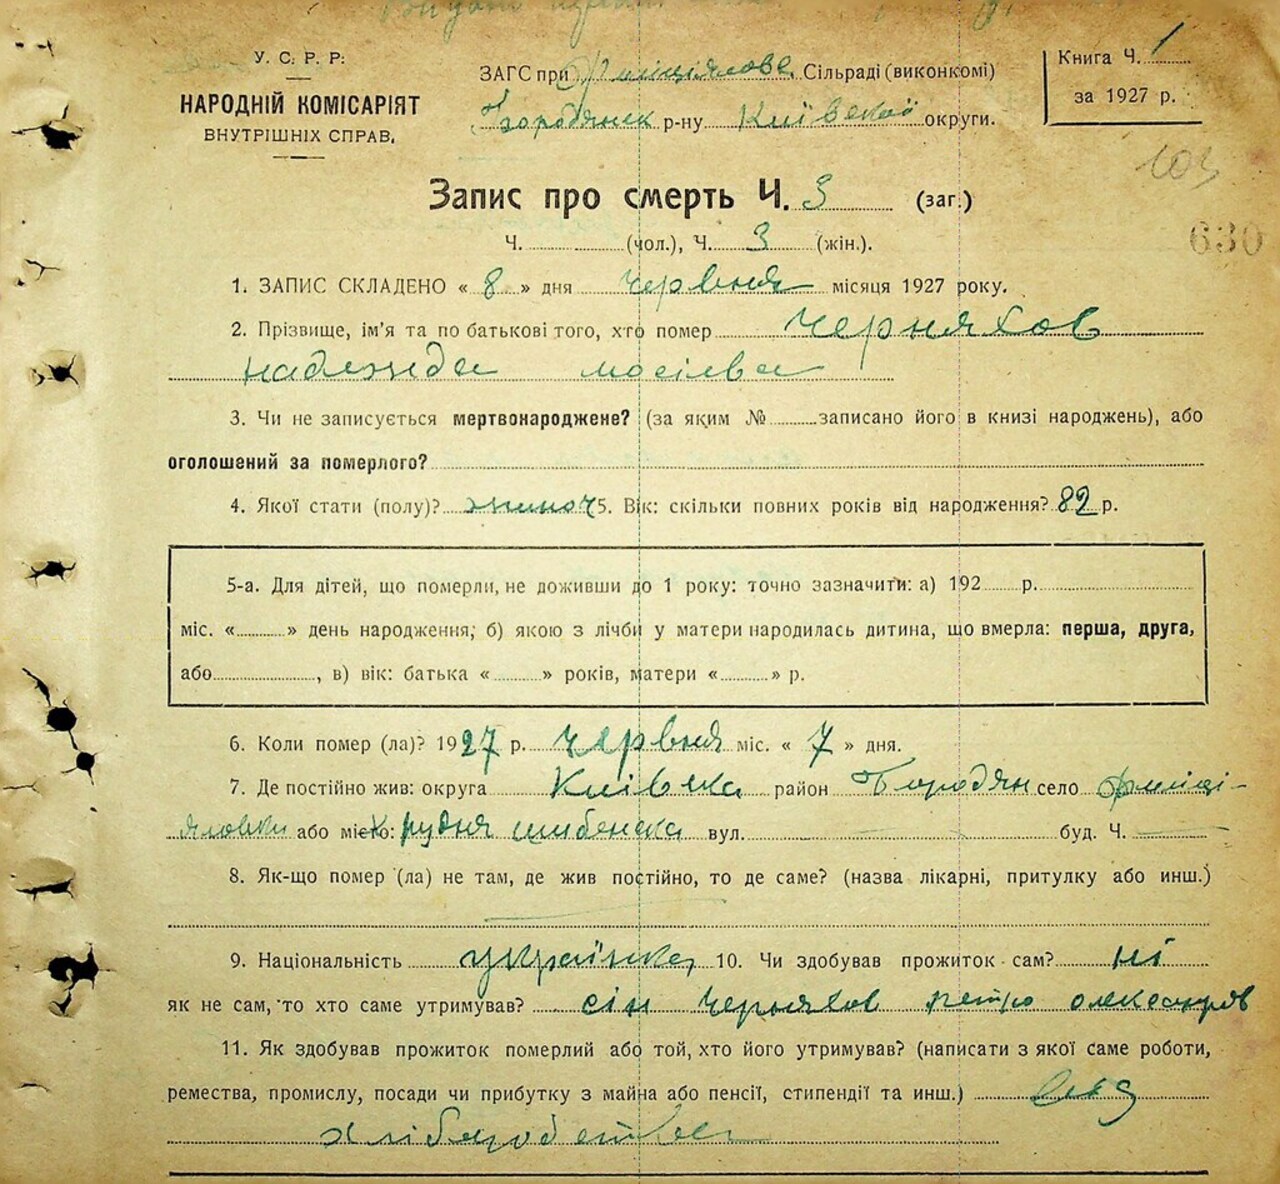 У. С. Р. Р.
НАРОДНІЙ КОМІСАРІЯТ
ВНУТРІШНІХ СПРАВ.
ЗАГС при Сільраді (виконкомі)
Бородянск р-ну Київської округи.
Книга Ч. 1
за 1927 р.
103
630
Запис про смерть Ч. 3 (заг.)
Ч. (чол.), Ч. 3 (жін.).
1. ЗАПИС СКЛАДЕНО « 8 » дня червня місяця 1927 року.
2. Прізвище, ім'я та по батькові того, хто помер Черняхов
надежда мосієва
3. Чи не записується мертвонароджене? (за яким № записано його в книзі народжень), або
оголошений за померлого?
4. Якої стати (полу)? жиноч 5. Вік: скільки повних років від народження? 82 р.
5-а. Для дітей, що померли, не доживши до 1 року: точно зазначити: а) 192 р.
міс. « » день народження; б) якою з лічби у матери народилась дитина, що вмерла: перша, друга,
або , в) вік: батька « » років, матери « » р.
6. Коли помер (ла)? 1927 р. червня міс. « 7 » дня.
7. Де постійно жив: округа Київска район Бородян село
або місто: рудня шибенска вул. буд. Ч.
8. Як-що помер (ла) не там, де жив постійно, то де саме? (назва лікарні, притулку або инш.)
9. Національність українка 10. Чи здобував прожиток сам? ні
як не сам, то хто саме утримував? сін Черняхов петро олександров
11. Як здобував прожиток померлий або той, хто його утримував? (написати з якої саме роботи,
ремества, промислу, посади чи прибутку з майна або пенсії, стипендії та инш.)